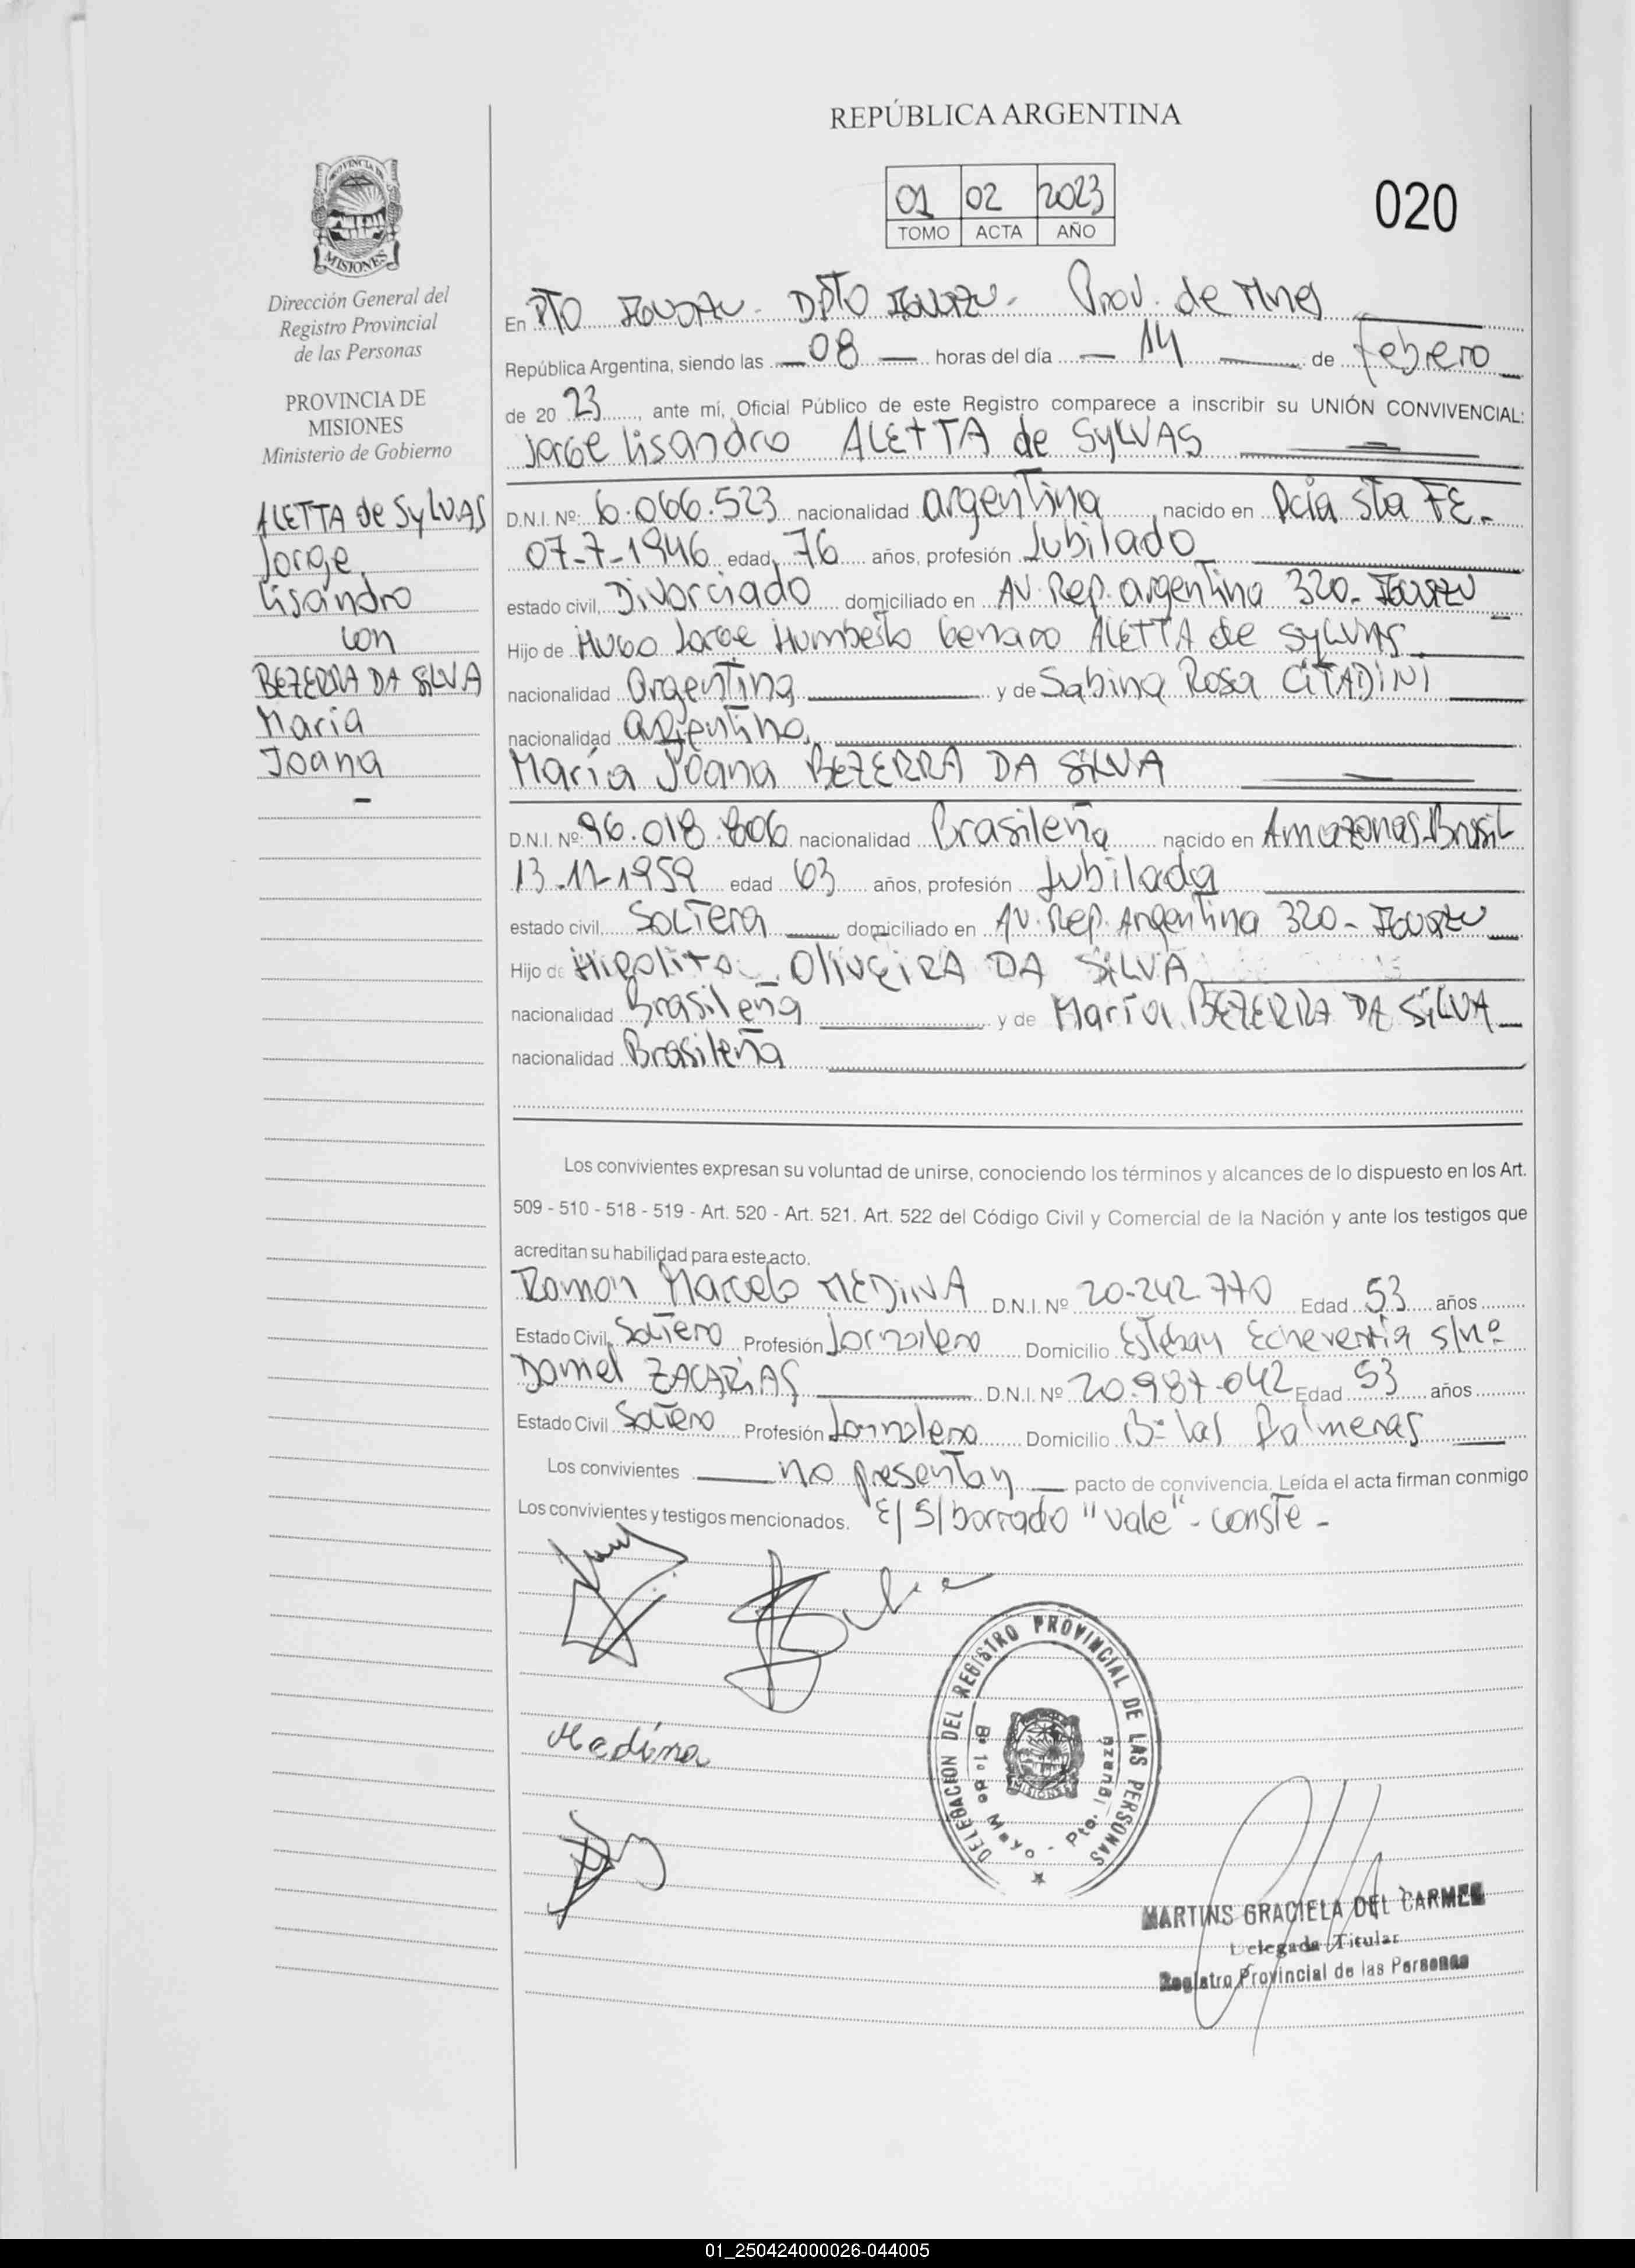 REPÚBLICA ARGENTINA
01 02 2023
TOMO ACTA AÑO
020
PROVINCIA DE
MISIONES
Dirección General del
Registro Provincial
de las Personas
PROVINCIA DE
MISIONES
Ministerio de Gobierno
ALETTA de SyLVAS
Jorge
Lisandro
con
BEZERRA DA SiLVA
Maria
Joana
En PTO IGUAZU - DPTO IGUAZU - Prov. de Mnes
República Argentina, siendo las 08 horas del día 14 de febrero
de 20 23, ante mí, Oficial Público de este Registro comparece a inscribir su UNIÓN CONVIVENCIAL:
Jorge Lisandro ALETTA de SyLVAS
D.N.I. Nº: 6.066.523 nacionalidad argentina nacido en Pcia Sta FE -
07-7-1946 edad 76 años, profesión Jubilado
estado civil, Divorciado domiciliado en AV. Rep. argentina 320 - IGUAZU
Hijo de HUGO Jorge Humberto Genaro ALETTA de SyLVAS
nacionalidad Argentina y de Sabina Rosa CiTADINI
nacionalidad argentina
María Joana BEZERRA DA SiLVA
D.N.I. Nº: 96.018.806 nacionalidad Brasileña nacido en Amazonas-Brasil
13-11-1959 edad 63 años, profesión Jubilada
estado civil, SOLTERA domiciliado en AV. Rep. Argentina 320 - IGUAZU
Hijo de Hipolito OlivEiRA DA SiLVA
nacionalidad Brasileña y de María BEZERRA DA SiLVA
nacionalidad Brasileña
Los convivientes expresan su voluntad de unirse, conociendo los términos y alcances de lo dispuesto en los Art.
509 - 510 - 518 - 519 - Art. 520 - Art. 521. Art. 522 del Código Civil y Comercial de la Nación y ante los testigos que
acreditan su habilidad para este acto.
Ramon Marcelo MEDiNA D.N.I. Nº 20-242-770 Edad 53 años
Estado Civil, Soltero Profesión Jornalero Domicilio Esteban Echeverría s/nº
Daniel ZACARiAS D.N.I. Nº 20.987.042 Edad 53 años
Estado Civil Soltero Profesión Jornalero Domicilio Bº las Palmeras
Los convivientes no presentan pacto de convivencia. Leída el acta firman conmigo
Los convivientes y testigos mencionados. E/ S/borrado "vale" - conste -
Medina
DELEGACION DEL REGISTRO PROVINCIAL DE LAS PERSONAS
Bº 1º de Mayo - Pto. Iguazu
MISIONES
MARTINS GRACIELA DEL CARMEN
Delegada Titular
Registro Provincial de las Personas
01_250424000026-044005